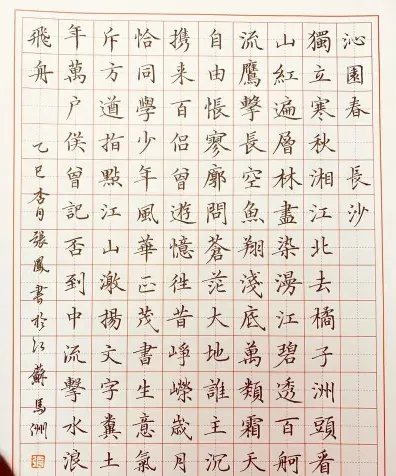 沁園春 長沙
獨立寒秋湘江北去橘子洲頭看
山紅遍層林盡染漫江碧透百舸
流鷹擊長空魚翔淺底萬類霜天
自由悵寥廓問蒼茫大地誰主沉
携来百侶曾遊憶徃昔崢嶸歳月
恰同學少年風華正茂書生意氣
斥方遒指點江山激揚文字糞土
年萬户侯曾記否到中流擊水浪
飛舟
乙巳杏月張鳳書於江蘇馬洲